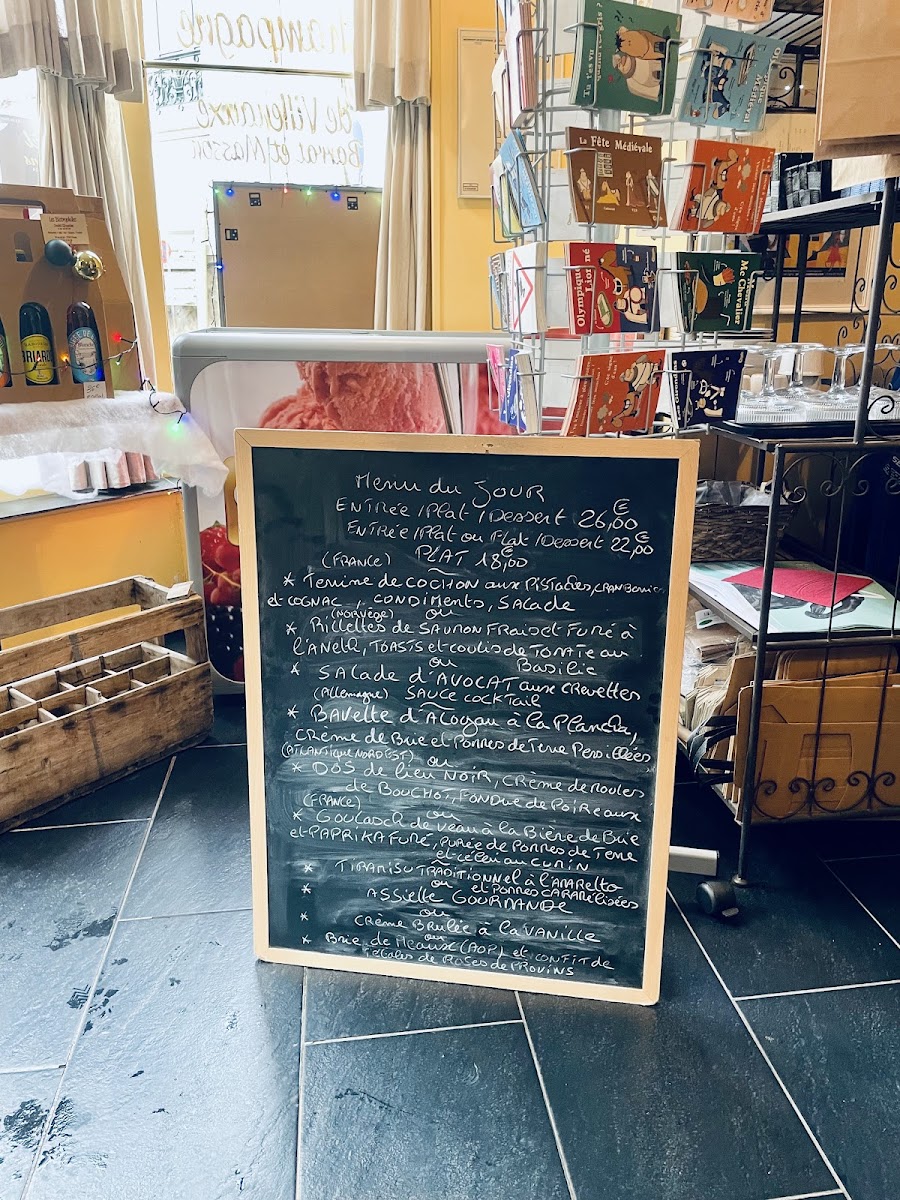 hampagne
de Villenauxe
Barrat et Masson
Tu t'es vu
La Fête Médiévale
Olympique
Mc Chevalier
BRIARD
Menu du JOUR
ENTRÉE / Plat / Dessert 26,00 €
ENTRÉE / Plat ou Plat / Dessert 22,00 €
PLAT 18,00 €
(FRANCE)
* Terrine de COCHON aux PISTACHES, CRANBERRIES
et COGNAC, CONDIMENTS, SALADE
(NORVÈGE) ou
* Rillettes de SAUMON FRAIS et FUMÉ à
l'ANETH, TOASTS et coulis de TOMATE au
ou Basilic
* SALADE d'AVOCAT aux CREVETTES
(Allemagne) SAUCE COCKTAIL
* Bavette d'Aloyau à la Plancha,
CRÈME de Brie et POMMES de Terre Persillées
(ATLANTIQUE NORD EST) ou
* DOS de lieu NOIR, CRÈME de MOULES
de BOUCHOT, FONDUE de Poireaux
(FRANCE) ou
* Goulasch de veau à la Bière de Brie
et PAPRIKA FUMÉ, PURÉE de POMMES de Terre
et céleri au CUMIN
* TIRAMISU TRADITIONNEL à l'AMARETTO
ou et POMMES CARAMÉLISÉES
* ASSIETTE GOURMANDE
ou
* CRÈME BRULÉE à la VANILLE
ou
* Brie de Meaux (AOP) et CONFIT de
Pétales de ROSES de PROVINS